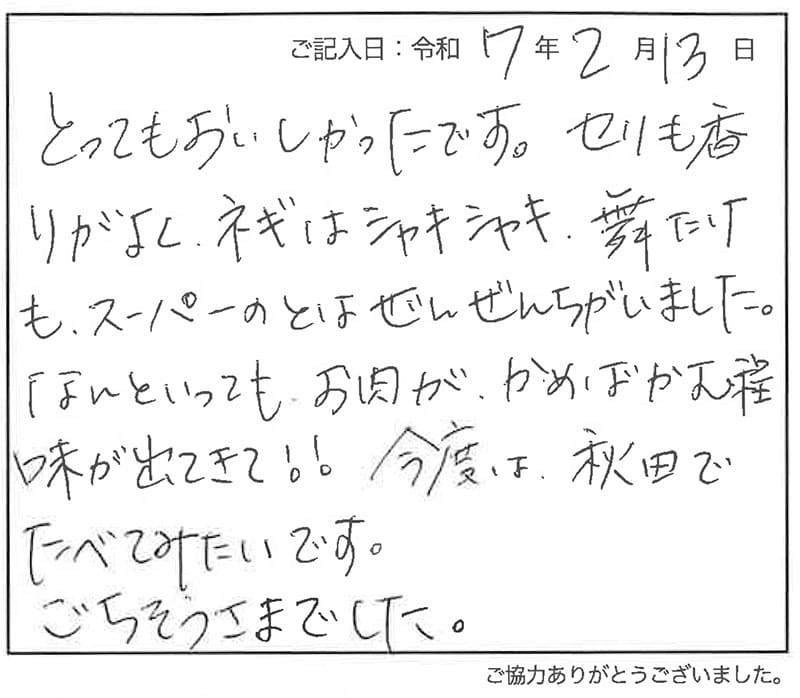 ご記入日：令和 7年2月13日
とってもおいしかったです。セリも香
りがよく、ネギはシャキシャキ、舞たけ
も、スーパーのとはぜんぜんちがいました。
なんといっても、お肉が、かめばかむ程
味が出てきて!! 今度は、秋田で
たべてみたいです。
ごちそうさまでした。
ご協力ありがとうございました。